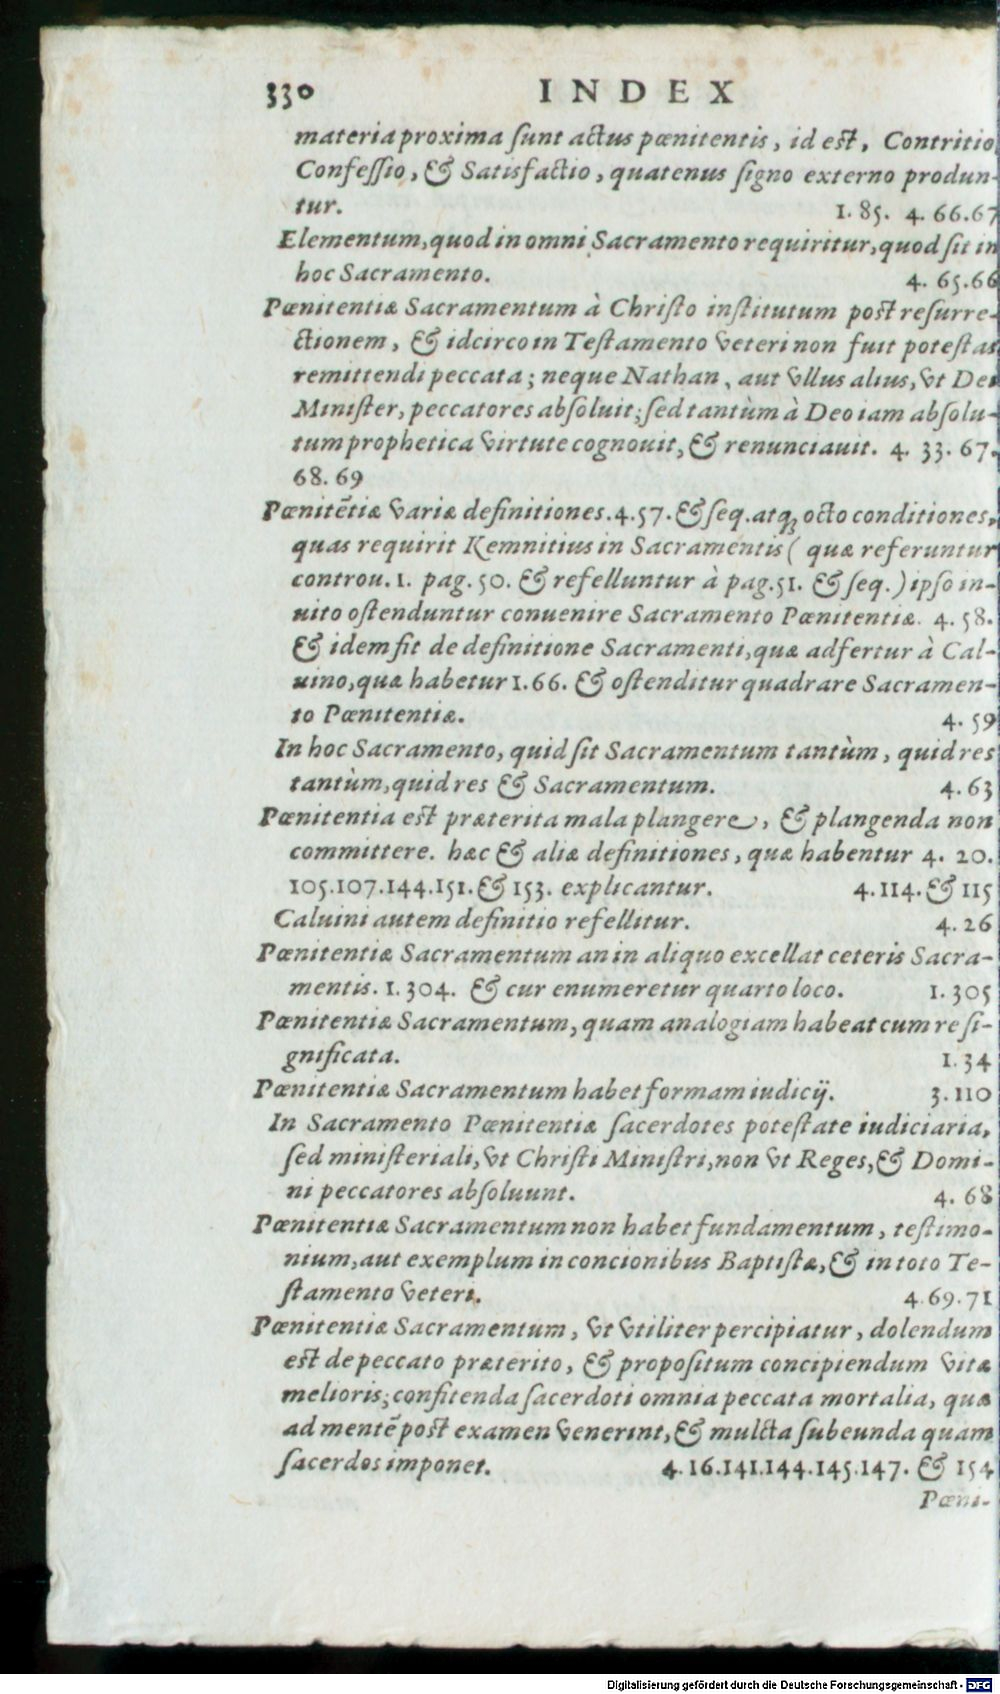 330 INDEX
materia proxima sunt actus pœnitentis, id est, Contritio
Confessio, & Satisfactio, quatenus signo externo produn-
tur. 1. 85. 4. 66.67
Elementum, quod in omni Sacramento requiritur, quod sit in
hoc Sacramento. 4. 65.66
Pœnitentiæ Sacramentum à Christo institutum post resurre-
ctionem, & idcirco in Testamento veteri non fuit potestas
remittendi peccata; neque Nathan, aut vllus alius, vt Dei
Minister, peccatores absoluit; sed tantùm à Deo iam absolu-
tum prophetica virtute cognouit, & renunciauit. 4. 33. 67.
68. 69
Pœnitẽtiæ variæ definitiones. 4.57. & seq. atq; octo conditiones,
quas requirit Kemnitius in Sacramentis ( quæ referuntur
controu. 1. pag. 50. & refelluntur à pag. 51. & seq.) ipso in-
uito ostenduntur conuenire Sacramento Pœnitentiæ. 4. 58.
& idem fit de definitione Sacramenti, quæ adfertur à Cal-
uino, quæ habetur 1.66. & ostenditur quadrare Sacramen-
to Pœnitentiæ. 4. 59
In hoc Sacramento, quid sit Sacramentum tantùm, quid res
tantùm, quid res & Sacramentum. 4. 63
Pœnitentia est præterita mala plangere, & plangenda non
committere. hæc & aliæ definitiones, quæ habentur 4. 20.
105.107.144.151. & 153. explicantur. 4. 114. & 115
Caluini autem definitio refellitur. 4. 26
Pœnitentiæ Sacramentum an in aliquo excellat ceteris Sacra-
mentis. 1. 304. & cur enumeretur quarto loco. 1. 305
Pœnitentiæ Sacramentum, quam analogiam habeat cum re si-
gnificata. 1. 34
Pœnitentiæ Sacramentum habet formam iudicij. 3. 110
In Sacramento Pœnitentiæ sacerdotes potestate iudiciaria,
sed ministeriali, vt Christi Ministri, non vt Reges, & Domi-
ni peccatores absoluunt. 4. 68
Pœnitentiæ Sacramentum non habet fundamentum, testimo-
nium, aut exemplum in concionibus Baptistæ, & in toto Te-
stamento veteri. 4.69.71
Pœnitentiæ Sacramentum, vt vtiliter percipiatur, dolendum
est de peccato præterito, & propositum concipiendum vitæ
melioris; confitenda sacerdoti omnia peccata mortalia, quæ
ad mentẽ post examen venerint, & mulcta subeunda quam
sacerdos imponet. 4.16.141.144.145.147. & 154
Pœni-
Digitalisierung gefördert durch die Deutsche Forschungsgemeinschaft - DFG